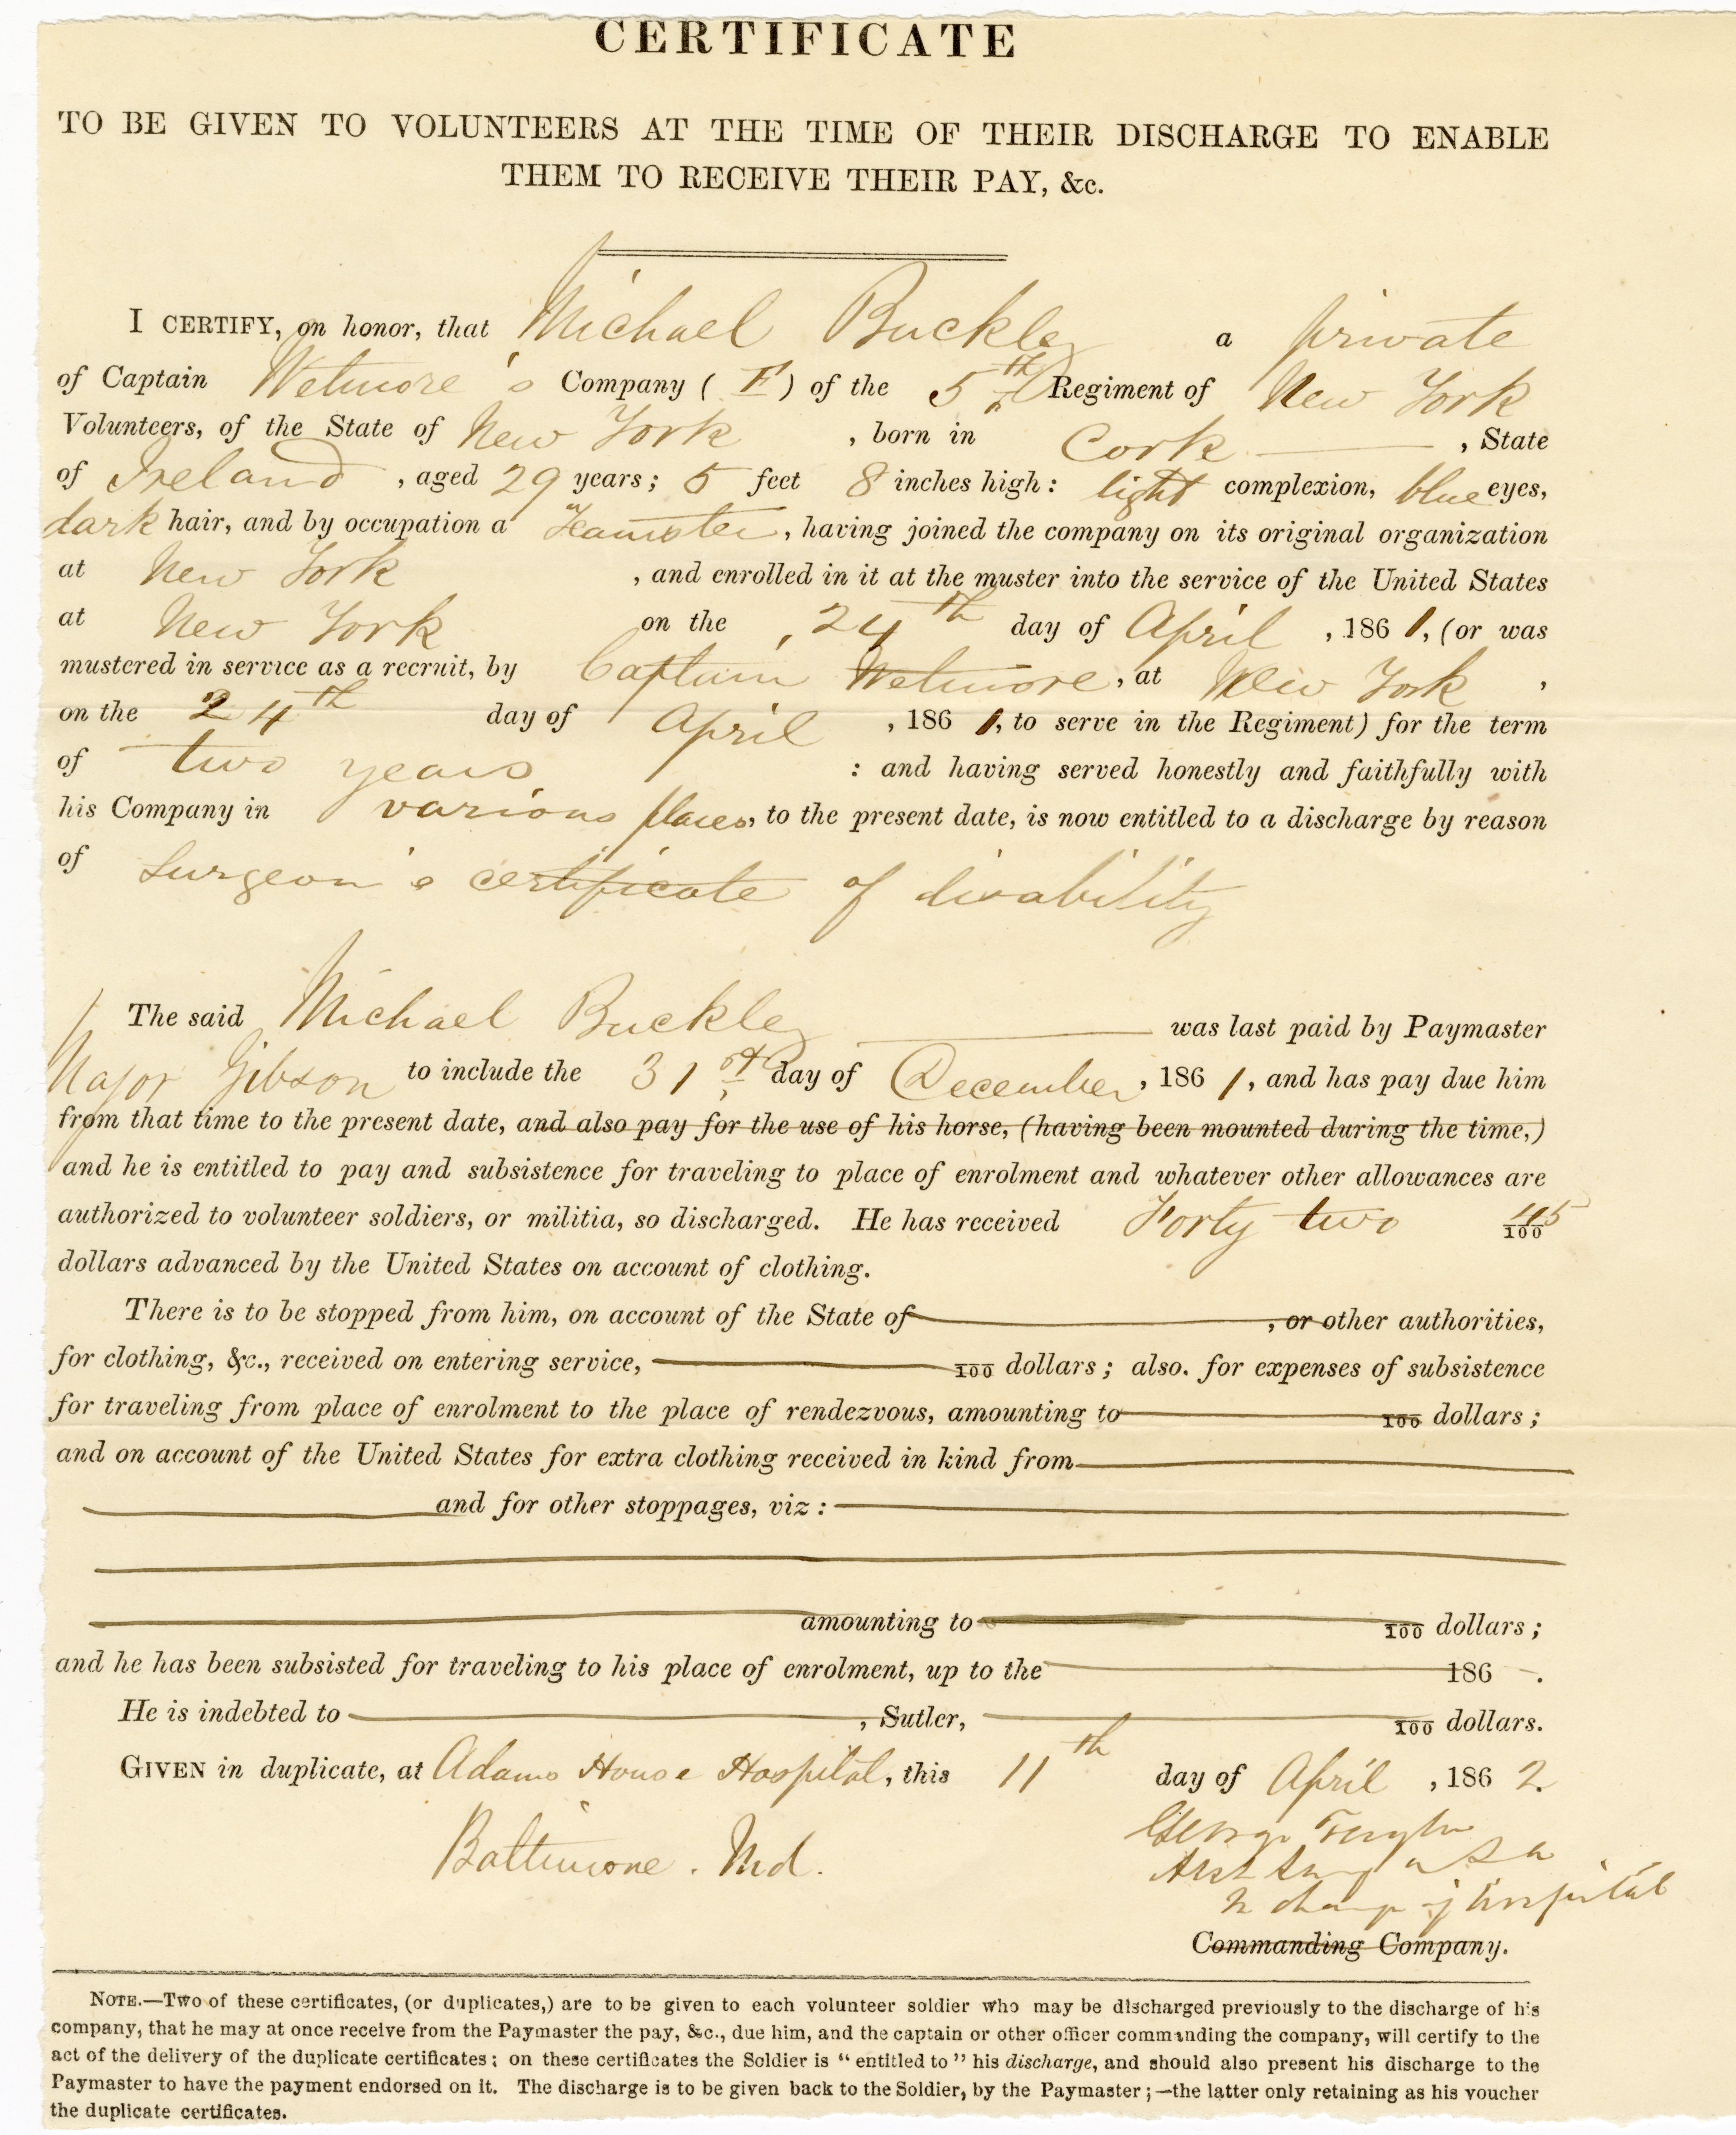 CERTIFICATE
TO BE GIVEN TO VOLUNTEERS AT THE TIME OF THEIR DISCHARGE TO ENABLE
THEM TO RECEIVE THEIR PAY, &c.
I CERTIFY, on honor, that Michael Buckley a private
of Captain Wetmore's Company ( F ) of the 5th Regiment of New York
Volunteers, of the State of New York , born in Cork , State
of Ireland , aged 29 years; 5 feet 8 inches high: light complexion, blue eyes,
dark hair, and by occupation a , having joined the company on its original organization
at New York , and enrolled in it at the muster into the service of the United States
at New York on the 24th day of April , 1861, (or was
mustered in service as a recruit, by Captain Wetmore, at New York ,
on the 24th day of April , 1861, to serve in the Regiment) for the term
of two years : and having served honestly and faithfully with
his Company in various places, to the present date, is now entitled to a discharge by reason
of Surgeon's certificate of disability
The said Michael Buckley was last paid by Paymaster
Major Gibson to include the 31st day of December, 1861, and has pay due him
from that time to the present date, and also pay for the use of his horse, (having been mounted during the time,)
and he is entitled to pay and subsistence for traveling to place of enrolment and whatever other allowances are
authorized to volunteer soldiers, or militia, so discharged. He has received Forty two 45/100
dollars advanced by the United States on account of clothing.
There is to be stopped from him, on account of the State of , or other authorities,
for clothing, &c., received on entering service, 100 dollars; also. for expenses of subsistence
for traveling from place of enrolment to the place of rendezvous, amounting to 100 dollars;
and on account of the United States for extra clothing received in kind from
and for other stoppages, viz:
amounting to 100 dollars;
and he has been subsisted for traveling to his place of enrolment, up to the 186 .
He is indebted to , Sutler, 100 dollars.
GIVEN in duplicate, at Adams House Hospital, this 11th day of April , 1862.
Baltimore. Md.
George
Asst Surg U S A
In charge of Hospital
Commanding Company.
NOTE.—Two of these certificates, (or duplicates,) are to be given to each volunteer soldier who may be discharged previously to the discharge of his
company, that he may at once receive from the Paymaster the pay, &c., due him, and the captain or other officer commanding the company, will certify to the
act of the delivery of the duplicate certificates; on these certificates the Soldier is "entitled to" his discharge, and should also present his discharge to the
Paymaster to have the payment endorsed on it. The discharge is to be given back to the Soldier, by the Paymaster;—the latter only retaining as his voucher
the duplicate certificates.